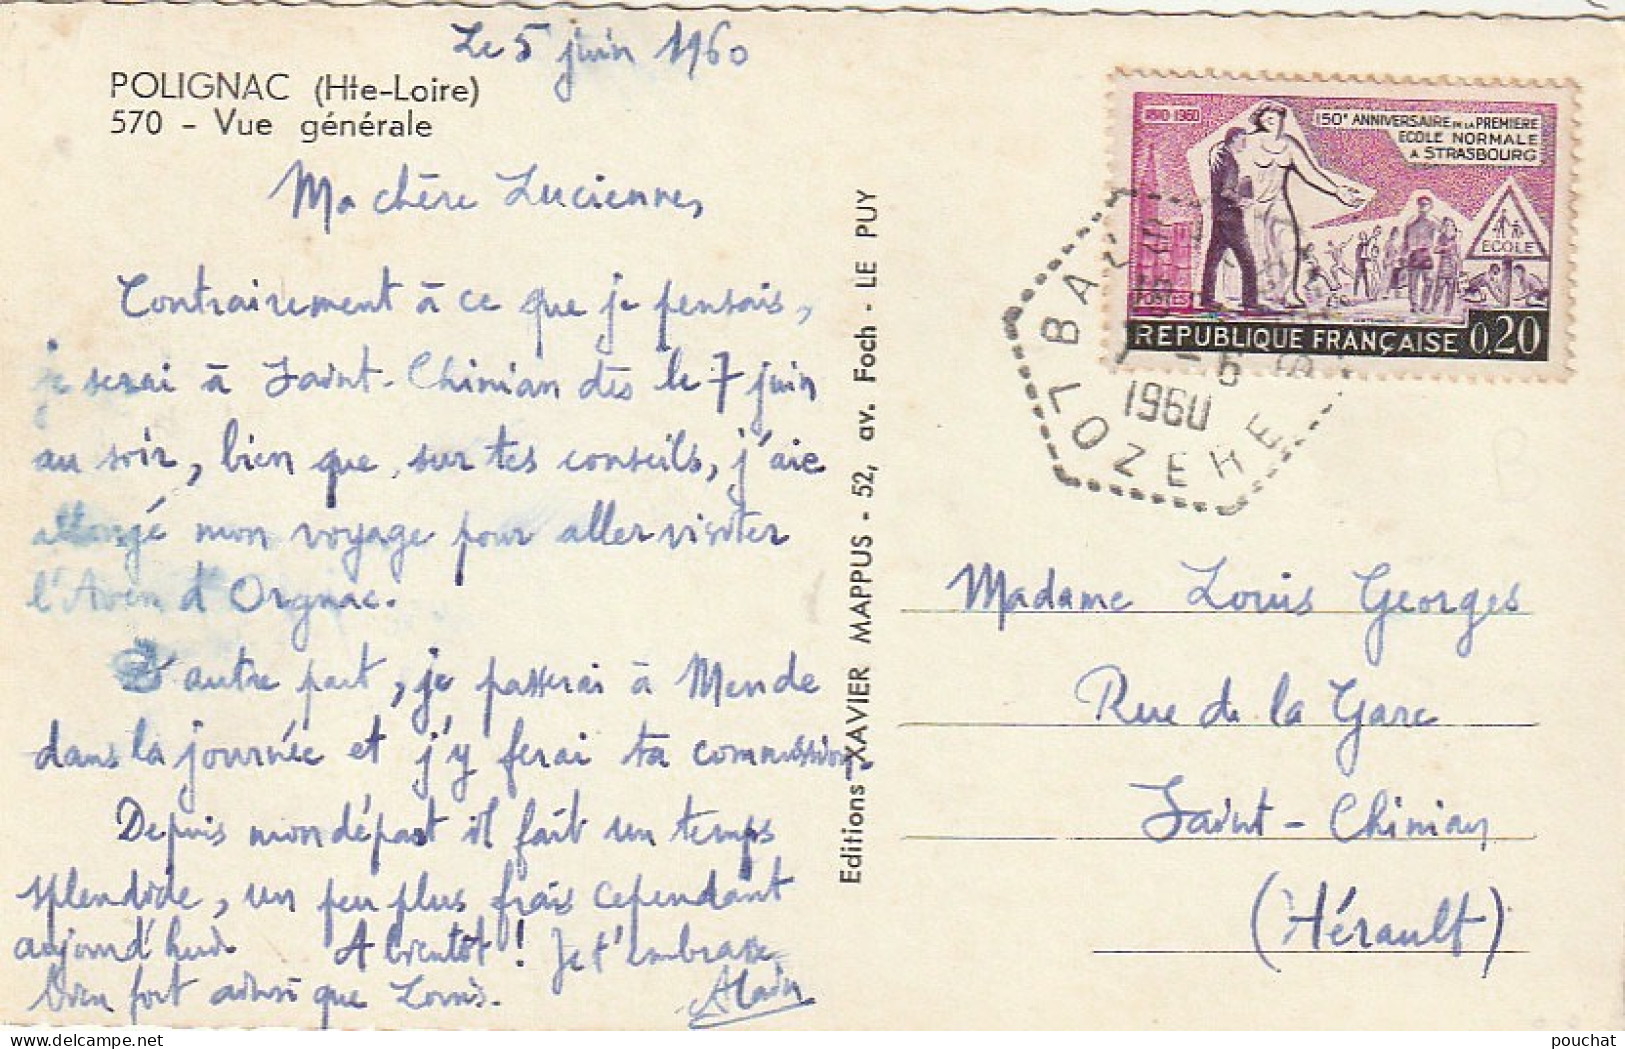 Le 5 juin 1960
POLIGNAC (Hte-Loire)
570 - Vue générale
Ma chère Lucienne,
Contrairement à ce que je pensais,
je serai à Saint-Chinian dès le 7 juin
au soir, bien que, sur tes conseils, j'aie
allongé mon voyage pour aller visiter
l'Aven d'Orgnac.
D'autre part, je passerai à Mende
dans la journée et j'y ferai ta commission.
Depuis mon départ il fait un temps
splendide, un peu plus frais cependant
aujourd'hui. A bientôt ! Je t'embrasse
bien fort ainsi que Louis.
Alain
Editions XAVIER MAPPUS - 52, av. Foch - LE PUY
1810-1960
150e ANNIVERSAIRE DE LA PREMIERE
ECOLE NORMALE
A STRASBOURG
ECOLE
POSTES
REPUBLIQUE FRANÇAISE 0,20
BA
-6
1960
LOZERE
Madame Louis Georges
Rue de la Gare
Saint-Chinian
(Hérault)
pouchat